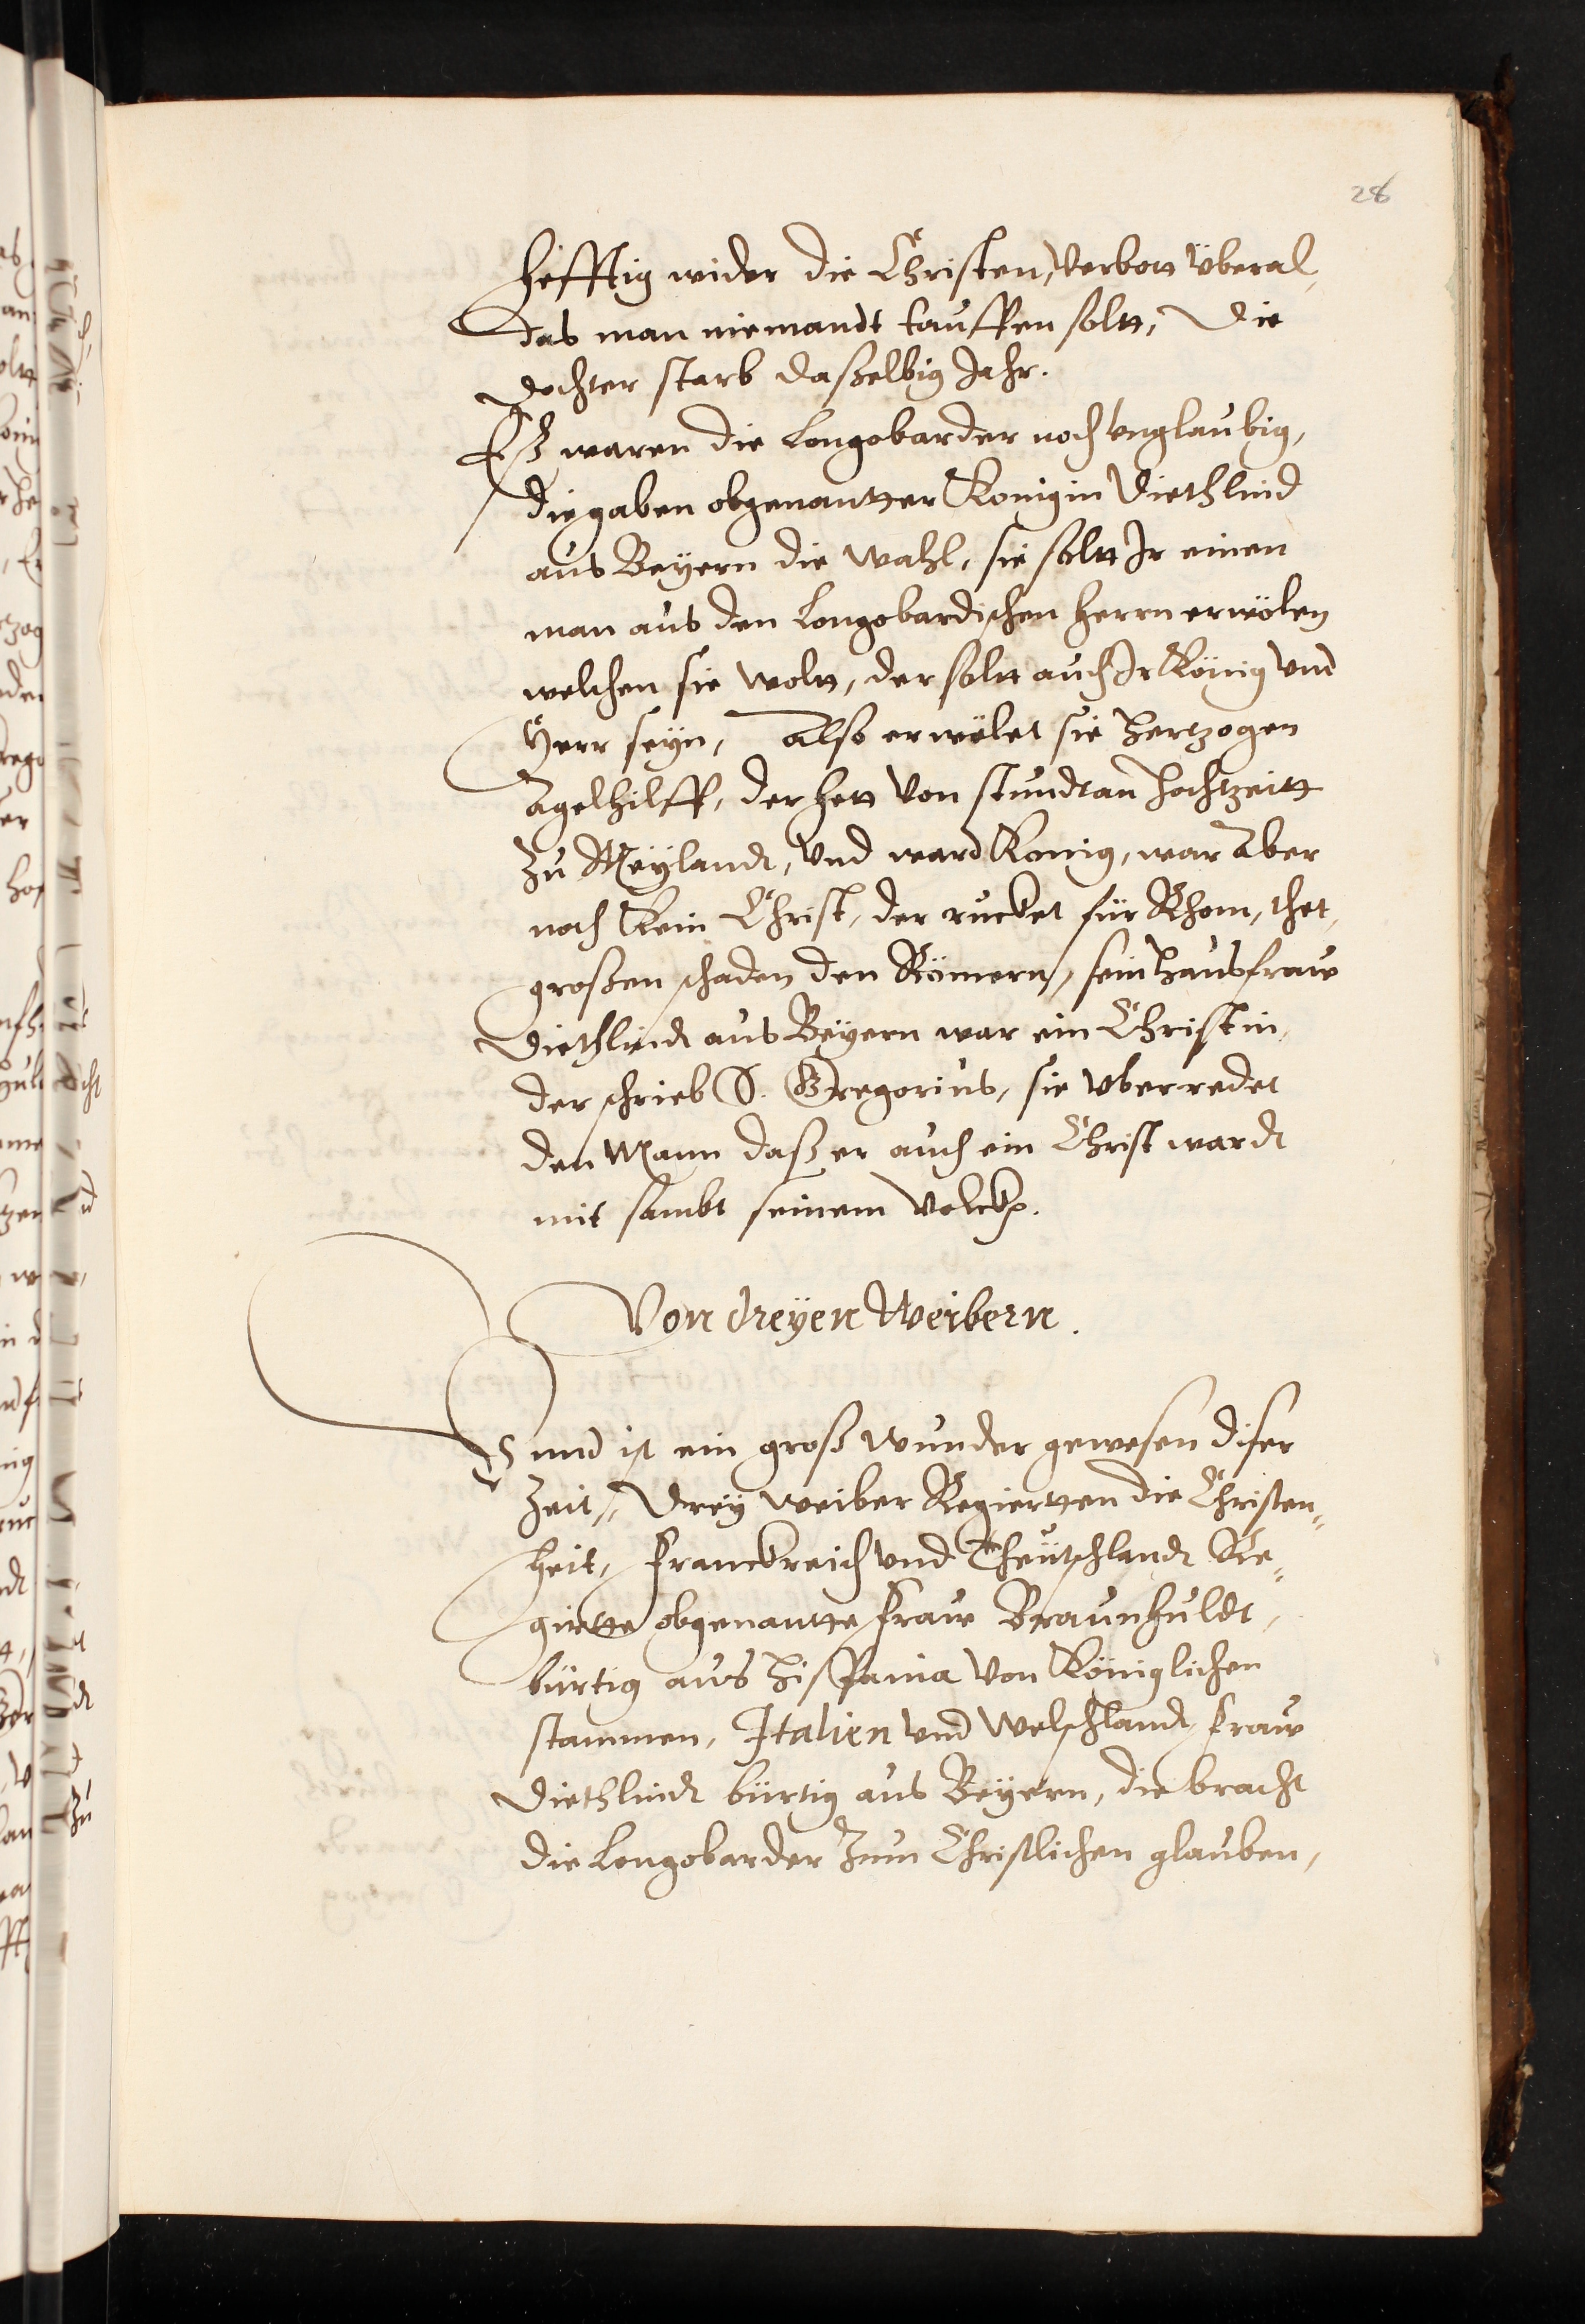 28
hefftig wider die Christen, Verbott überal,
das man niemandt tauffen soltt, Die
Dochter starb daßelbig Jahr.
Eß waren die Longobarder noch vnglaubig,
die gaben obgenantter Konigin Diethlind
aus Beÿern die Wahl, sie soltt Ir einen
man aus den Longobardischen Herrn erwölen
welchen sie woltt, der soltt auch Ir König vnd
Herr seÿn, Also erwölet sie Hertzogen
Agelhilff, der hett von stundt an hochtzeitt
zu Meÿlandt, vnd ward Konig, war Aber
noch kein Christ, der rucket für Rhom, thet,
großen schaden den Römern, sein Hausfraw
Diethlindt aus Beÿern war ein Christin,
der schrieb S. Gregorius, sie vberredet
den Mann daß er auch ein Christ wardt
mit sambt seinem Volckh.
Von dreÿen Weibern.
Unnd ist ein groß wunder gewesen diser
Zeit, Dreÿ weiber Regiertten die Christen„
heit, Franckreich vnd Theutschlandt Re„
girtte obgenantte Fraw Braunhuldt,
bürtig aus Hispania von Königlichen
stammen, Italien vnd Welschlandt, Fraw
Diethlindt bürtig aus Beÿern, die bracht
die Longobarder zum Christlichen glauben,